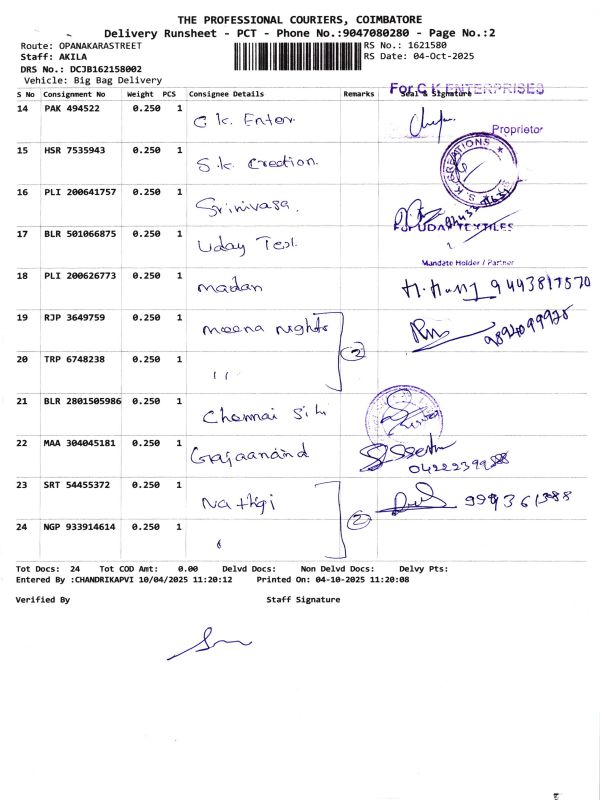 THE PROFESSIONAL COURIERS, COIMBATORE
Delivery Runsheet - PCT - Phone No.:9047080280 - Page No.:2
Route: OPANAKARASTREET
RS No.: 1621580
Staff: AKILA
RS Date: 04-Oct-2025
DRS No.: DCJB162158002
Vehicle: Big Bag Delivery
For C K ENTERPRISES
S No Consignment No Weight PCS Consignee Details Remarks Seal & Signature
14 PAK 494522 0.250 1 C k. Enter
Proprietor
15 HSR 7535943 0.250 1 S.k. Creation.
S. K. CREATIONS
16 PLI 200641757 0.250 1 Srinivasa.
For UDAY TEXTILES
17 BLR 501066875 0.250 1 Uday Text
Mandate Holder / Partner
18 PLI 200626773 0.250 1 madan 9443817570
19 RJP 3649759 0.250 1 meena nights 2 9894099975
20 TRP 6748238 0.250 1 ,,
21 BLR 2801505986 0.250 1 Chennai Silk
22 MAA 304045181 0.250 1 Gajaanand
23 SRT 54455372 0.250 1 Nathgi 2
24 NGP 933914614 0.250 1
Tot Docs: 24 Tot COD Amt: 0.00 Delvd Docs: Non Delvd Docs: Delvy Pts:
Entered By :CHANDRIKAPVI 10/04/2025 11:20:12 Printed On: 04-10-2025 11:20:08
Verified By Staff Signature